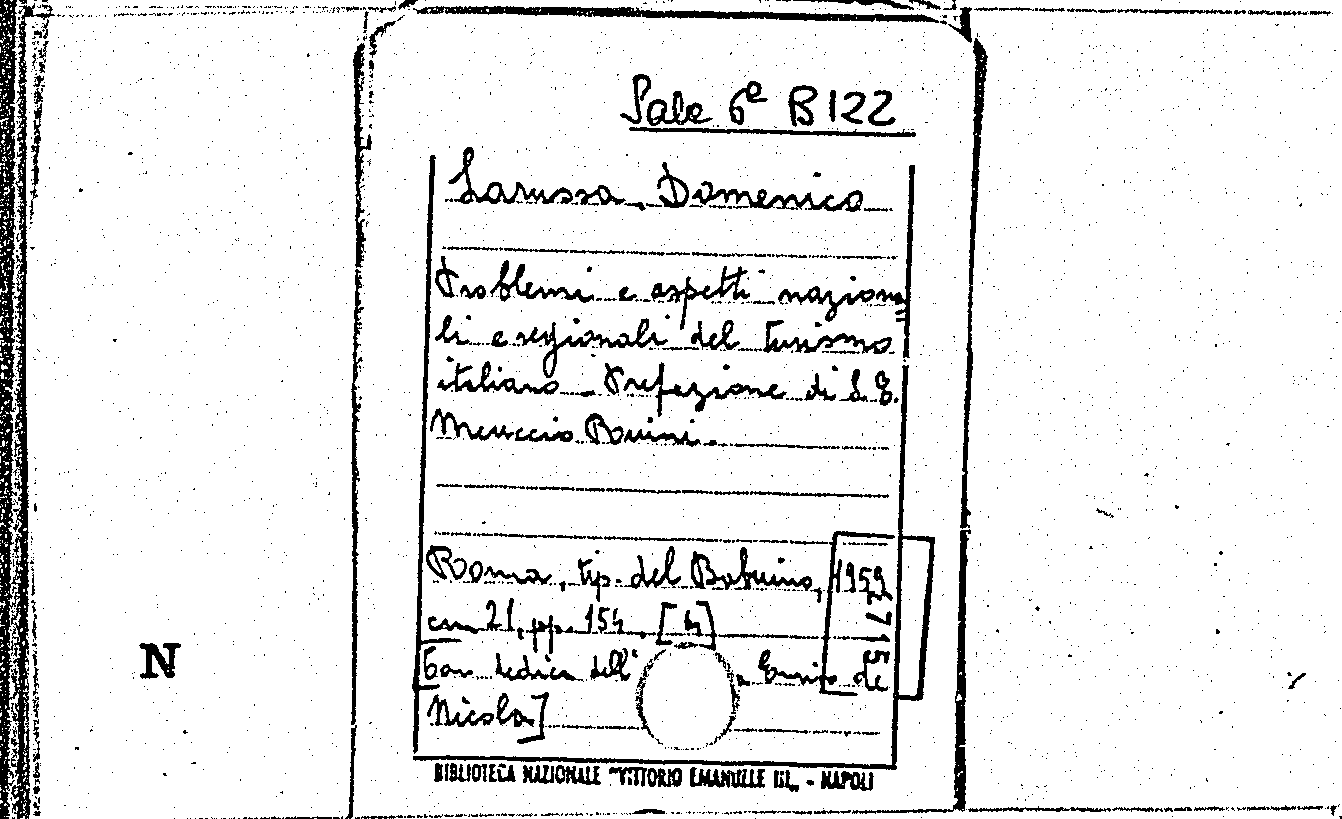 Sala 6ª B122
Larussa, Domenico
Problemi e aspetti naziona=
li e regionali del turismo
italiano - Prefazione di S. E.
Meuccio Ruini.
Roma, tip. del Babuino, 1959
cm. 21, pp. 154, [4]
[Con dedica dell' Enrico de
Nicola]
2715
N
BIBLIOTECA NAZIONALE "VITTORIO EMANUELE III„ - NAPOLI